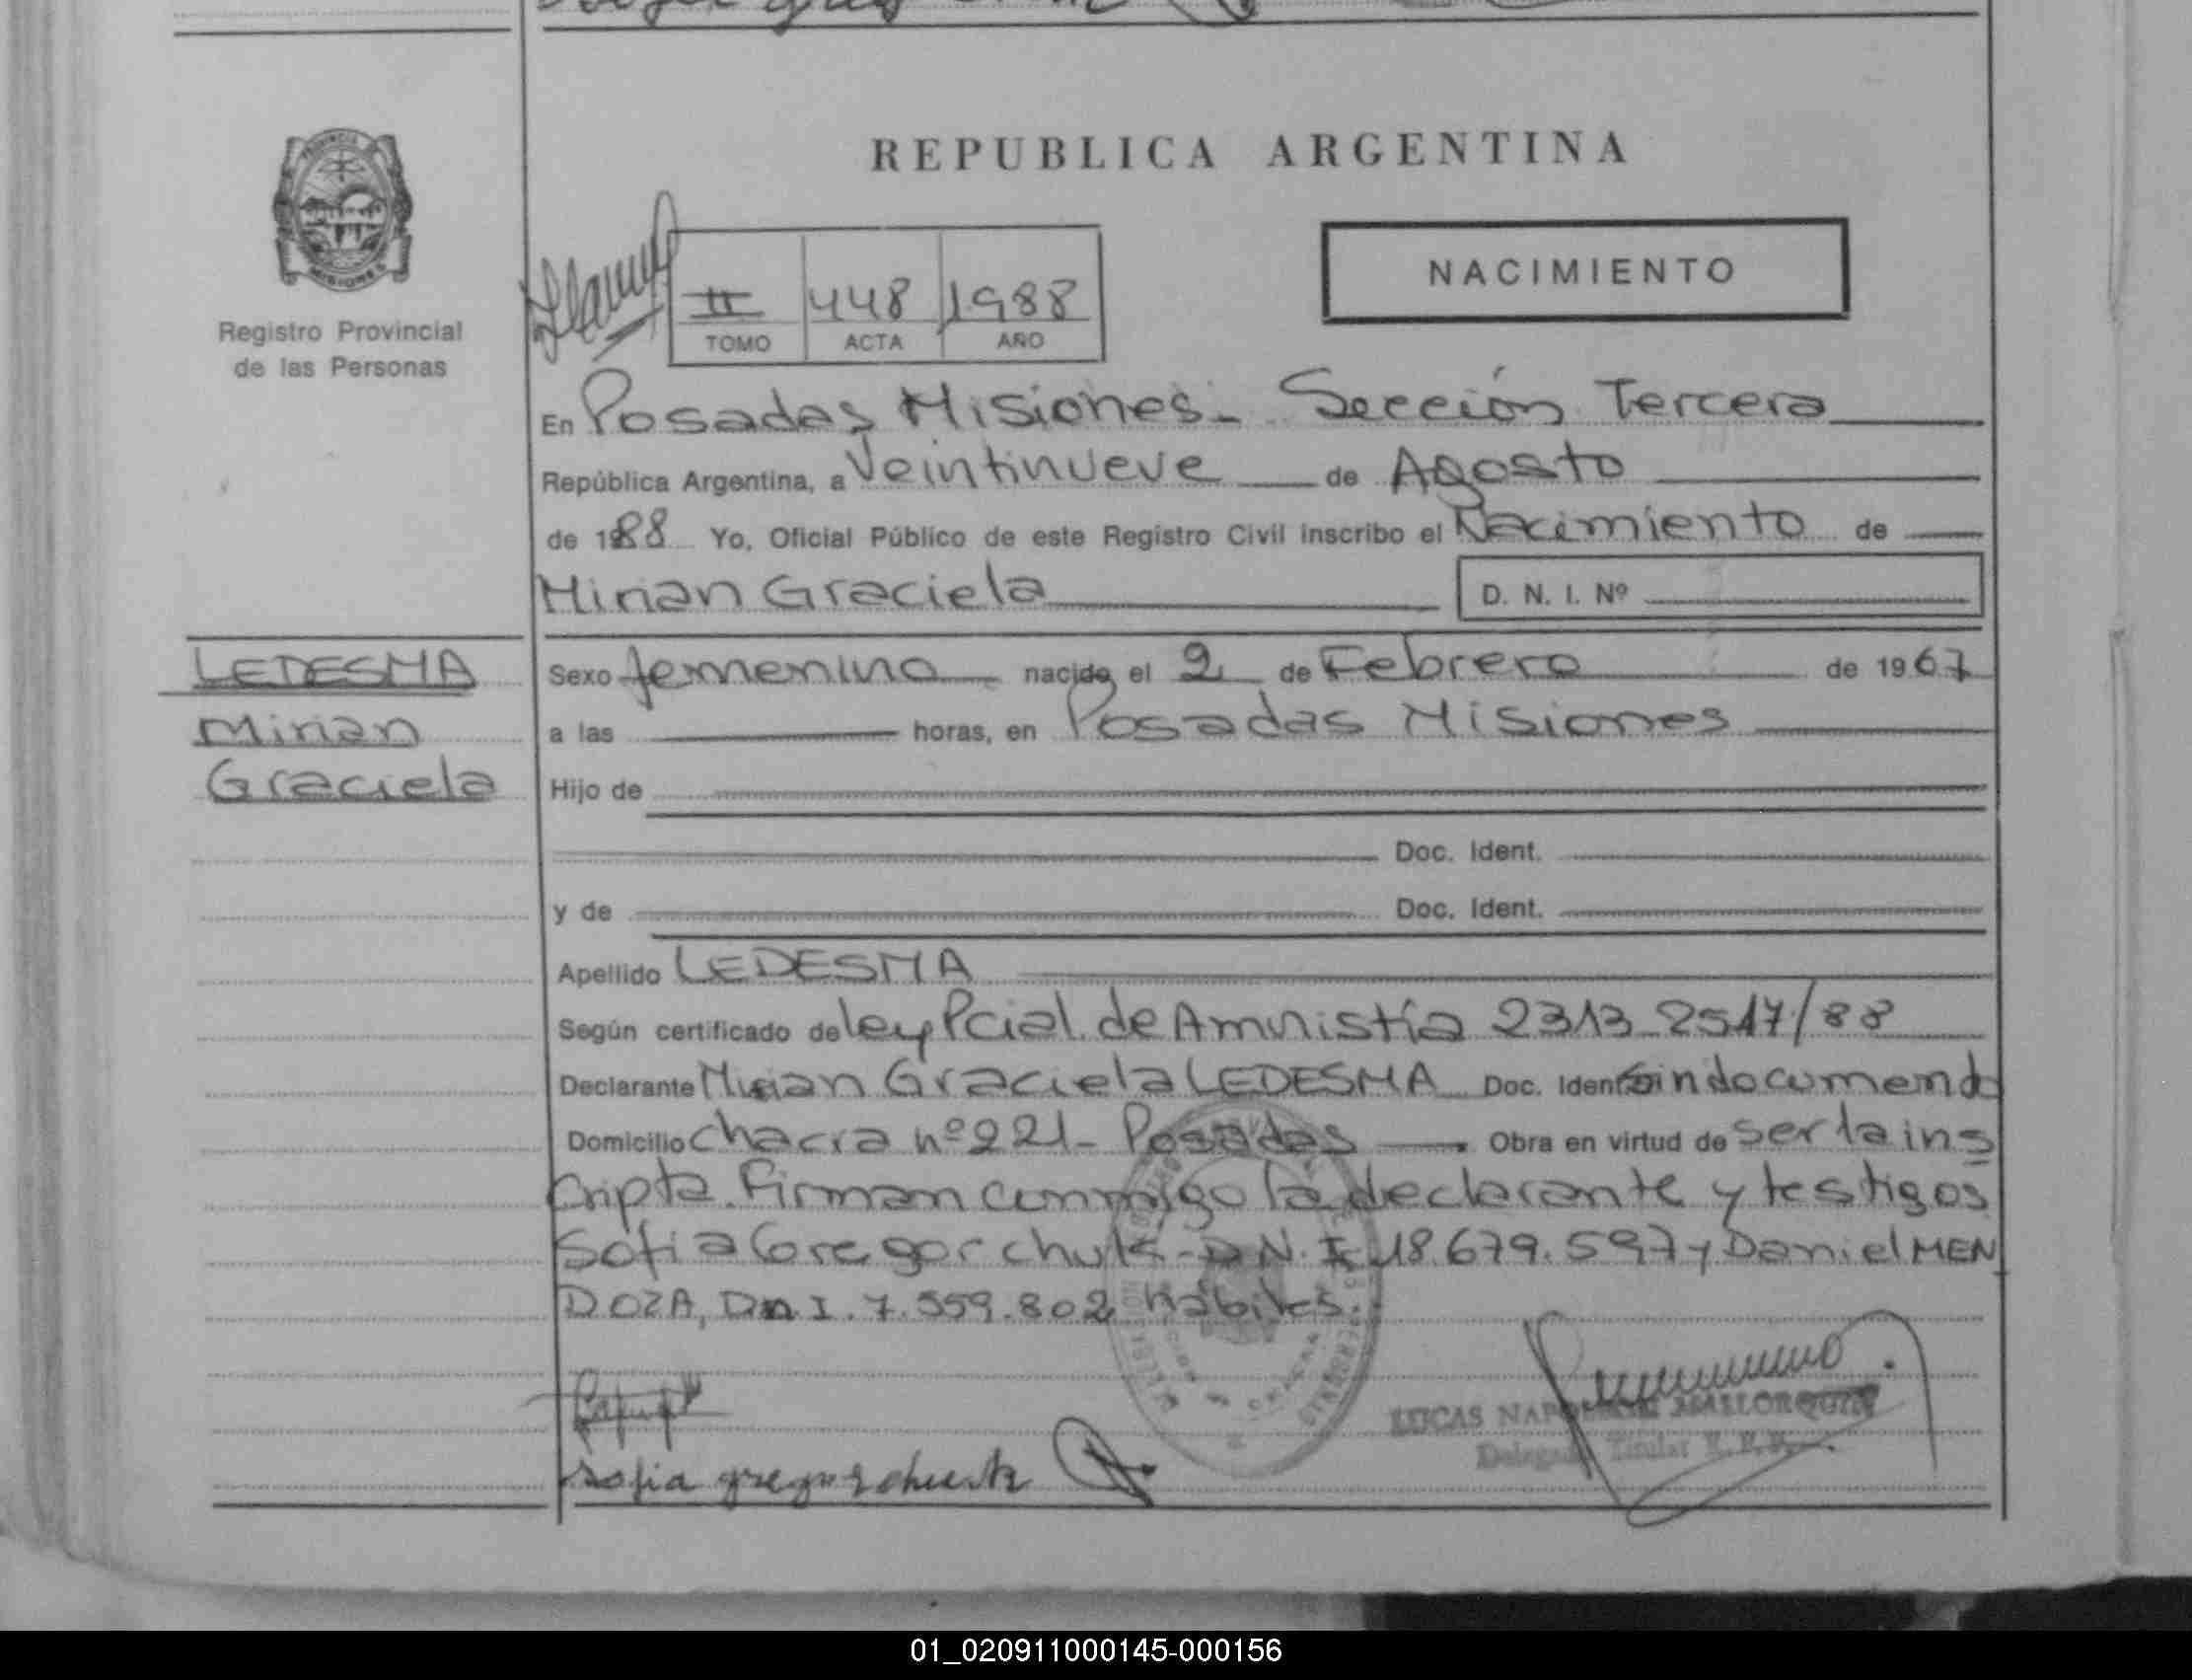 REPUBLICA ARGENTINA
NACIMIENTO
II 448 1988
TOMO ACTA AÑO
Registro Provincial
de las Personas
En Posadas Misiones - Sección Tercera
República Argentina, a Veintinueve de Agosto
de 1988 Yo, Oficial Público de este Registro Civil inscribo el Nacimiento de
Mirian Graciela D. N. I. Nº
LEDESMA
Mirian
Graciela
Sexo femenino nacido el 2 de Febrero de 1967
a las horas, en Posadas Misiones
Hijo de
Doc. Ident.
y de Doc. Ident.
Apellido LEDESMA
Según certificado de ley Pcial. de Amnistía 2313-2517/88
Declarante Mirian Graciela LEDESMA Doc. Ident. sin documento
Domicilio Chacra nº 221 - Posadas Obra en virtud de ser la ins
cripta. Firman conmigo la declarante y testigos
Sofia Gregorchuk - D.N.I. 18.679.597 y Daniel MEN
DOZA, D.N.I. 7.559.802 hábiles.
sofia gregorchuk
LUCAS NAPOLEON MALLORQUIN
Delegado Titular R. P. P.
01_020911000145-000156